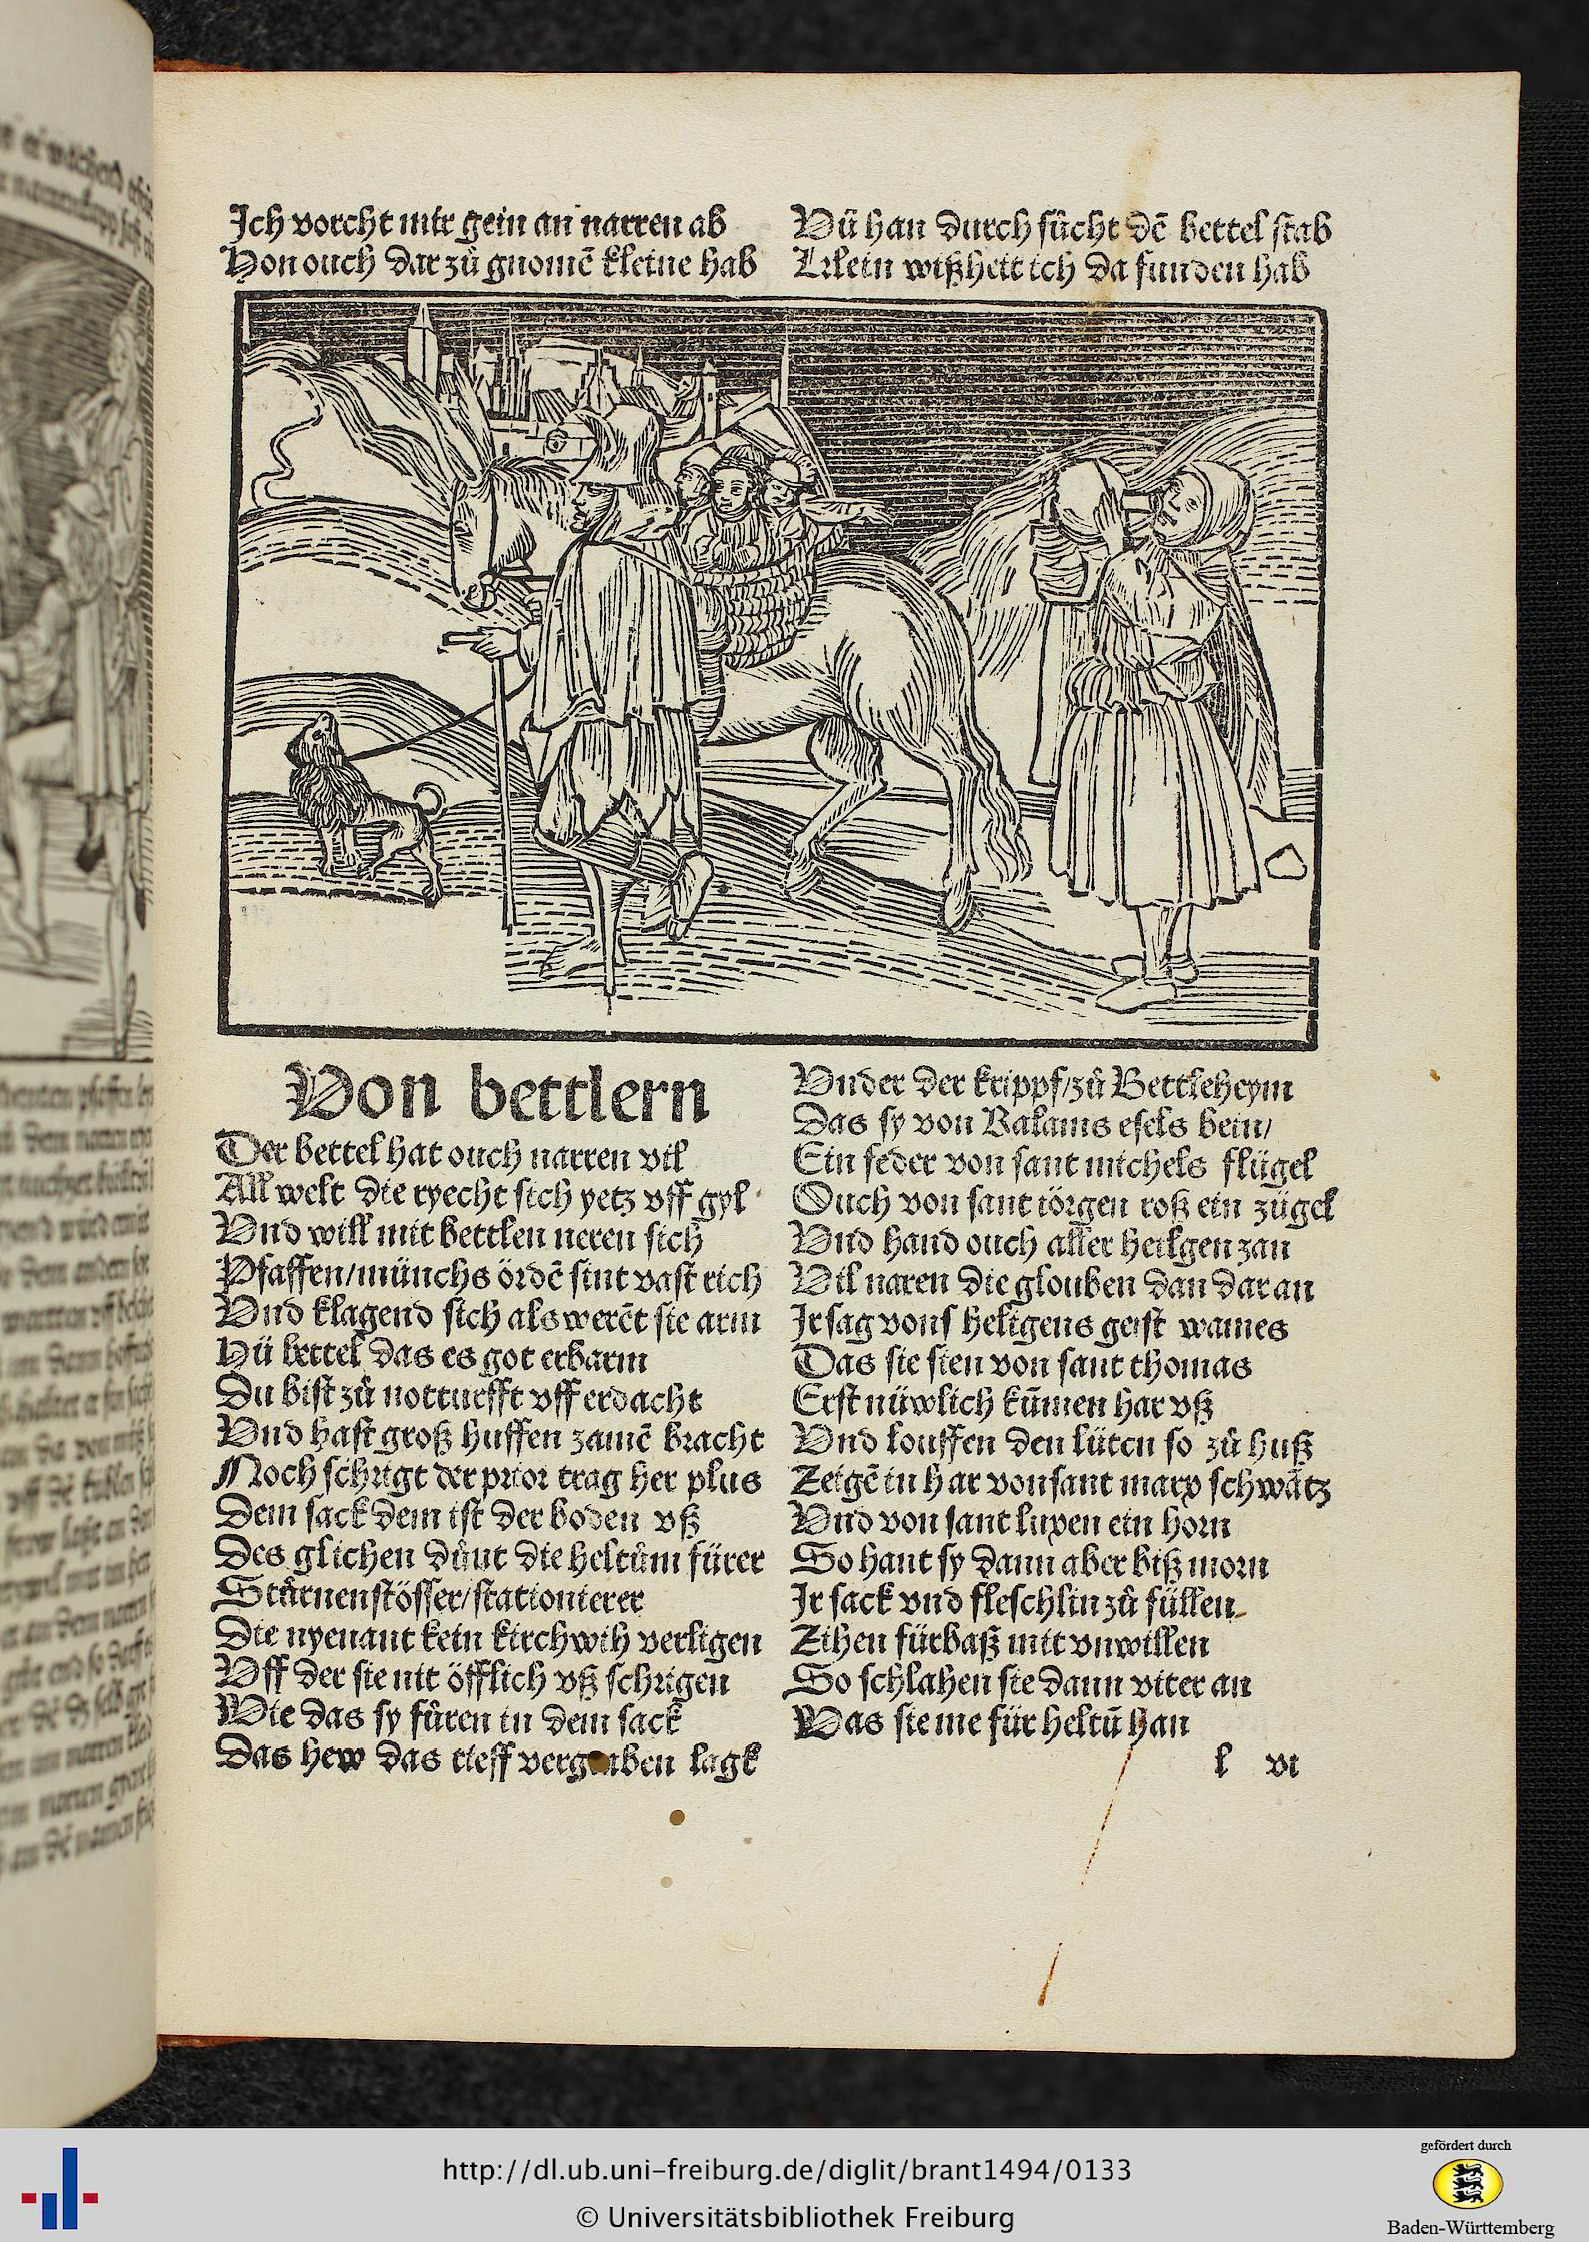 Ich vorcht mir gein an narren ab
Hon ouch dar zů gnomē kleine hab
Vñ han durch sůcht dē bettel stab
Klein wißheit ich da funden hab
Von bettlern
Der bettel hat ouch narren vil
All welt die ryecht sich yetz vff gyl
Vnd will mit bettlen neren sich
Pfaffen/münchs ördē sint vast rich
Vnd klagend sich als werēt sie arm
Hü bettel das es got erbarm
Du bist zů notturfft vff erdacht
Vnd hast groß huffen zamē bracht
Noch schrigt der prior trag her plus
Dem sack dem ist der boden vß
Des glichen důnt die heltům fürer
Stürnenstösser/stationierer
Die nyenant kein kirchwih verligen
Vff der sie nit öfflich vß schrigen
Wie das sy fůren in dem sack
Das hew das tieff vergraben lagk
Vnder der krippf/zů Bettleheym
Das sy von Balams esels bein/
Ein feder von sant michels flügel
Ouch von sant iörgen roß ein zügel
Vnd hand ouch aller heilgen zan
Vil naren die glouben dan dar an
Ir sag vons heligens geist wames
Das sie sien von sant thomas
Erst nüwlich kūmen har vß
Vnd louffen den lüten so zů huß
Zeigē in har von sant marx schwātz
Vnd von sant luxen ein horn
So hant sy dann aber biß morn
Ir sack vnd fleschlin zů füllen
Zihen fürbaß mit vnwillen
So schlahen sie dann viter an
Was sie me für heltū han
l vi
http://dl.ub.uni-freiburg.de/diglit/brant1494/0133
© Universitätsbibliothek Freiburg
gefördert durch
Baden-Württemberg